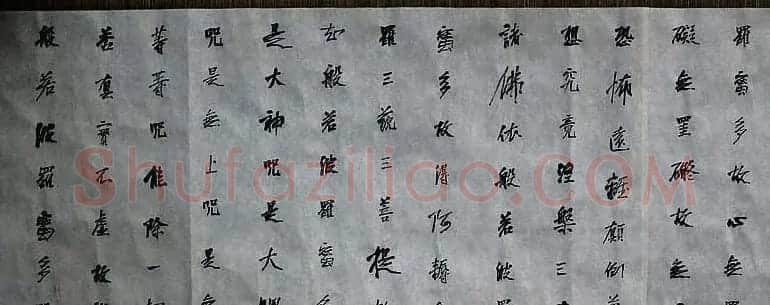 羅蜜多故心無
礙無罣礙故無
恐怖遠離顛倒
想究竟涅槃三
諸佛依般若波
蜜多故得阿耨
羅三藐三菩提
知般若波羅蜜
是大神咒是大
咒是無上咒是
等等咒能除一
苦真實不虛故
般若波羅蜜多
Shufaziliao.COM